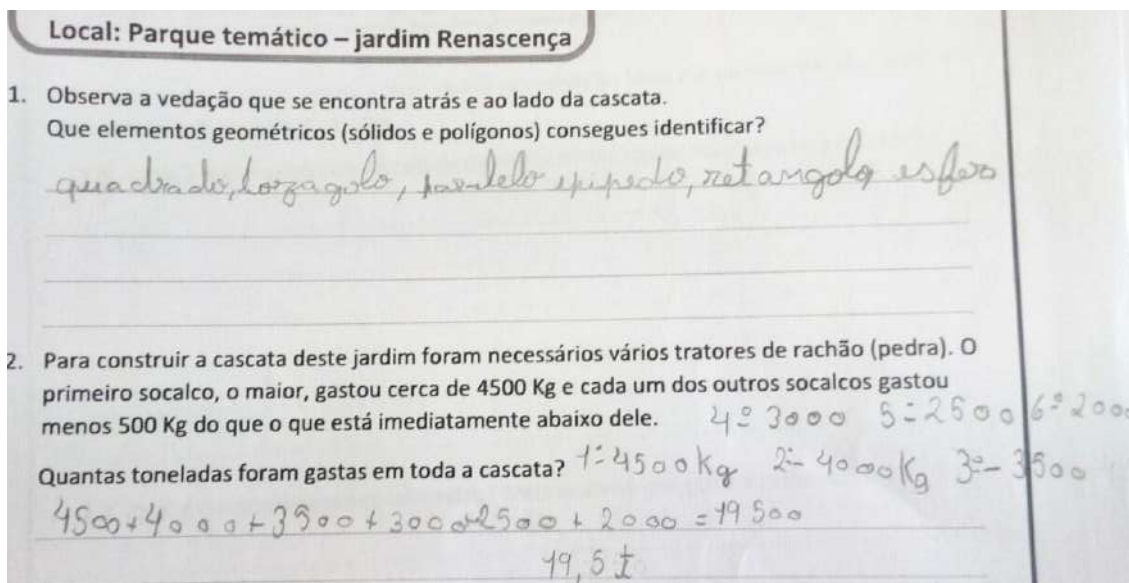 Local: Parque temático – jardim Renascença
1. Observa a vedação que se encontra atrás e ao lado da cascata.
Que elementos geométricos (sólidos e polígonos) consegues identificar?
quadrado, lozagolo, paralelo epipedo, retangolo esfera
2. Para construir a cascata deste jardim foram necessários vários tratores de rachão (pedra). O
primeiro socalco, o maior, gastou cerca de 4500 Kg e cada um dos outros socalcos gastou
menos 500 Kg do que o que está imediatamente abaixo dele.
4º 3000 5º 2500 6º 2000
Quantas toneladas foram gastas em toda a cascata?
1º 4500 Kg 2º 4000 Kg 3º 3500
4500+4000+3500+3000+2500+2000=19500
19,5 t